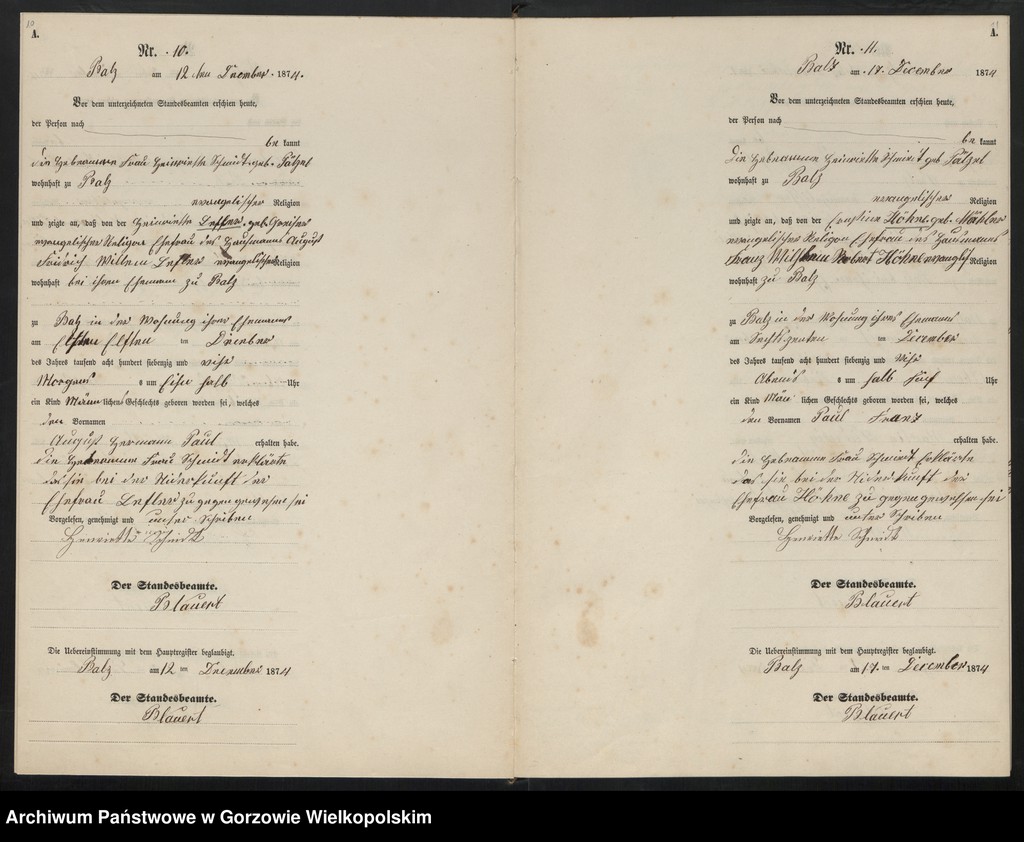 10
A.
Nr. 10.
Balz am 12 ten December 1874.
Vor dem unterzeichneten Standesbeamten erschien heute,
der Person nach
be kannt
die Hebeamme Frau Henriette Schmidt geb. Pätzel
wohnhaft zu Balz
evangelischer Religion
und zeigte an, daß von der Henriette geb.
evangelischer Religion Ehefrau des Hausmanns August
Fridrich Willem evangelischer Religion
wohnhaft bei ihren Ehemann zu Balz
zu Balz in der Wohnung ihres Ehemanns
am Elften ten December
des Jahres tausend acht hundert siebenzig und vihr
Morgens s um halb Uhr
ein Kind Männ lichen Geschlechts geboren worden sei, welches
den Vornamen
August Hermann Paul erhalten habe.
die Hebeamme Frau Schmidt erklärte
das sie bei der Niderkunft der
Ehefrau zu gegen gewesen sei
Vorgelesen, genehmigt und unter Schriben
Henriette Schmidt
Der Standesbeamte.
Blauert
Die Uebereinstimmung mit dem Hauptregister beglaubigt.
Balz am 12 ten December 1874
Der Standesbeamte.
Blauert
11
A.
Nr. 11.
Balz am 17. December 1874
Vor dem unterzeichneten Standesbeamten erschien heute,
der Person nach
be kannt
die Hebeamme Henriette Schmidt geb Pätzel
wohnhaft zu Balz
evangelischer Religion
und zeigte an, daß von der Höhne geb. Mähler
evangelischer Religion Ehefrau des Hausmanns
Franz Wilhelm Robert Höhne evanglisch Religion
wohnhaft zu Balz
zu Balz in der Wohnung ihres Ehemans
am Sechszenten ten December
des Jahres tausend acht hundert siebenzig und Vihr
Abens s um halb Fünf Uhr
ein Kind Män lichen Geschlechts geboren worden sei, welches
den Vornamen Paul Franz
erhalten habe.
die Hebeamme Frau Schmidt erklärte
das sie bei der Niderkunft der
Ehefrau Höhne zu gegen gewessen sei
Vorgelesen, genehmigt und unter Schriben
Henriette Schmidt
Der Standesbeamte.
Blauert
Die Uebereinstimmung mit dem Hauptregister beglaubigt.
Balz am 17. ten December 1874
Der Standesbeamte.
Blauert
Archiwum Państwowe w Gorzowie Wielkopolskim